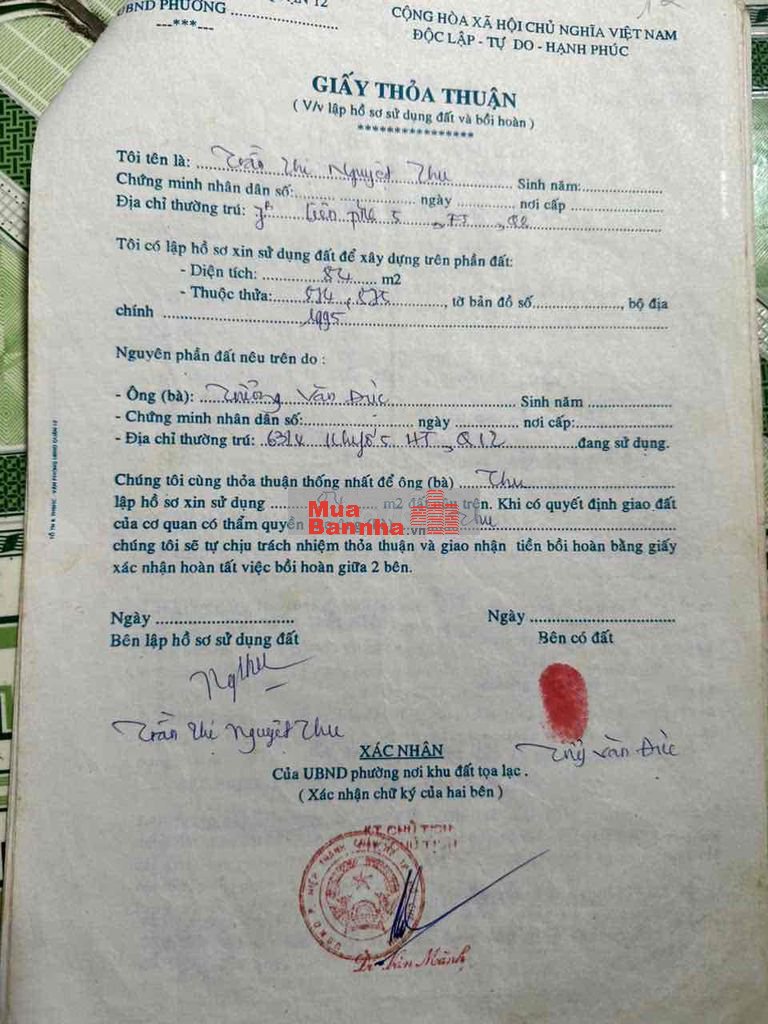 ẬN 12
UBND PHƯỜNG ....................
---***---
CỘNG HÒA XÃ HỘI CHỦ NGHĨA VIỆT NAM
ĐỘC LẬP - TỰ DO - HẠNH PHÚC
GIẤY THỎA THUẬN
( V/v lập hồ sơ sử dụng đất và bồi hoàn )
***************
Tôi tên là: Trần Thị Nguyệt Thu Sinh năm:
Chứng minh nhân dân số: ngày nơi cấp
Địa chỉ thường trú:
Tôi có lập hồ sơ xin sử dụng đất để xây dựng trên phần đất:
- Diện tích: 84 m2
- Thuộc thửa: 874, 875, tờ bản đồ số, bộ địa
chính 1995
Nguyên phần đất nêu trên do :
- Ông (bà): Văn Đức Sinh năm
- Chứng minh nhân dân số: ngày nơi cấp:
- Địa chỉ thường trú: HT, Q12 đang sử dụng.
Chúng tôi cùng thỏa thuận thống nhất để ông (bà) Thu
lập hồ sơ xin sử dụng 84 m2 đất nêu trên. Khi có quyết định giao đất
của cơ quan có thẩm quyền Thu
chúng tôi sẽ tự chịu trách nhiệm thỏa thuận và giao nhận tiền bồi hoàn bằng giấy
xác nhận hoàn tất việc bồi hoàn giữa 2 bên.
Mua
Bannha.vn
Ngày
Bên lập hồ sơ sử dụng đất
Ngày
Bên có đất
Ngthu
Trần Thị Nguyệt Thu
Văn Đức
XÁC NHẬN
Của UBND phường nơi khu đất tọa lạc .
( Xác nhận chữ ký của hai bên )
KT. CHỦ TỊCH
CHỦ TỊCH